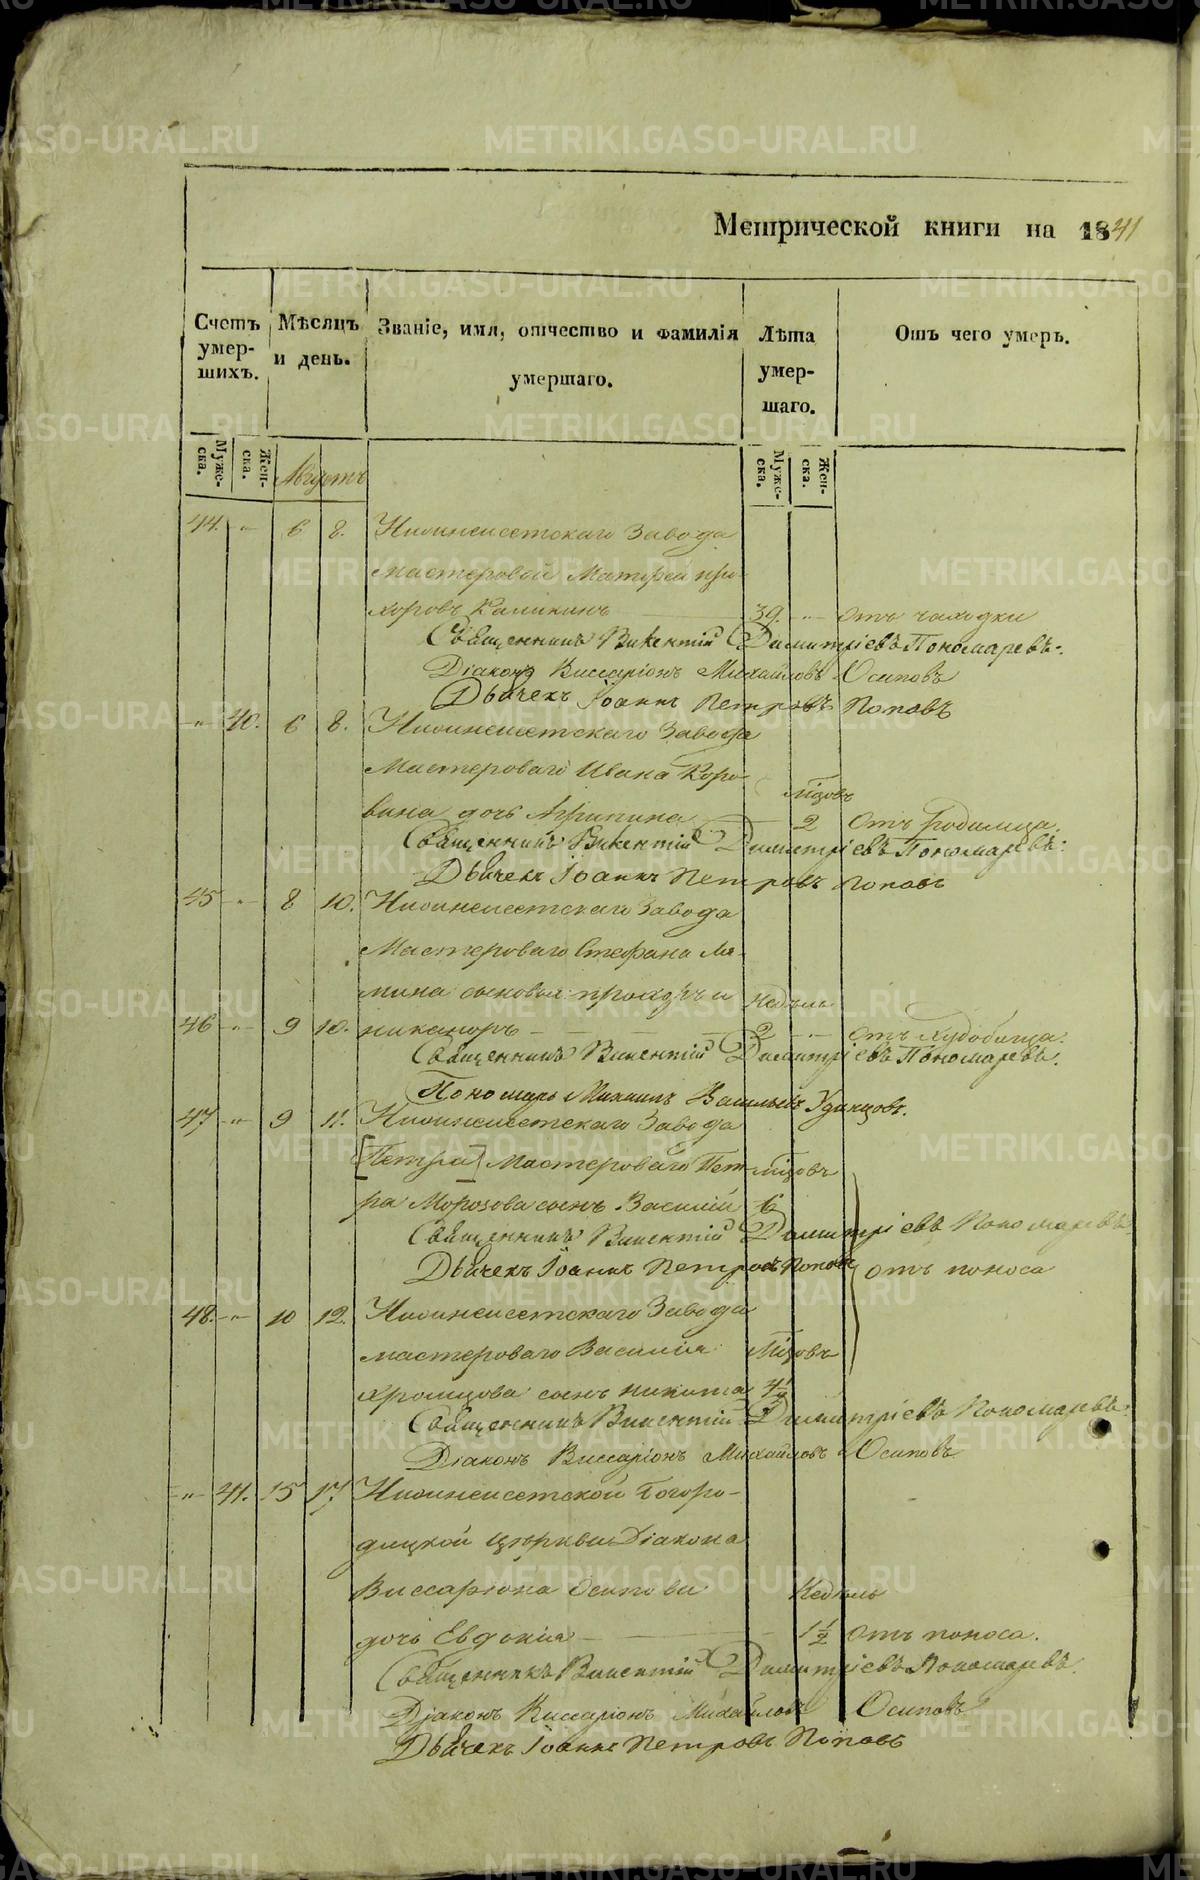 Метрической книги на 1841
Счетъ умершихъ.
Мѣсяцъ и день.
Званіе, имя, отчество и фамилія умершаго.
Лѣта умершаго.
Отъ чего умеръ.
Мужеска.
Женска.
Августъ
Мужеска.
Женска.
44. -"- 6 8. Нижнеисетскаго Завода
мастеровой Матфей про-
хоровъ Каликинъ 39. -"- отъ чахотки
Священникъ Викентій Димитріевъ Пономаревъ.
Діаконъ Виссаріонъ Михайловъ Осиповъ
Дьячекъ Іоаннъ Петровъ Поповъ
-"- 40. 6 8. Нижнеисетскаго Завода
Мастероваго Ивана Коро- мѣцовъ
вина дочь Агрипина 2 Отъ родимца.
Священникъ Викентій Димитріевъ Пономаревъ.
Дьячекъ Іоаннъ Петровъ Поповъ
45 -"- 8 10. Нижнеисетскаго Завода
Мастероваго Стефана Ля-
мина сыновья: прохоръ и недѣль
46 -"- 9 10. никаноръ 2 -"- отъ худобища.
Священникъ Викентій Димитріевъ Пономаревъ.
Пономарь Михаилъ Васильевъ Удинцовъ.
47 -"- 9 11. Нижнеисетскаго Завода
[Петра] Мастероваго Пет- мѣцовъ
ра Морозова сынъ Василій 6
Священникъ Викентій Димитріевъ Пономаревъ
Дьячекъ Іоаннъ Петровъ Поповъ отъ поноса
48. -"- 10 12. Нижнеисетскаго Завода
мастероваго Василія мѣцовъ
хромцова сынъ никита 4½
Священникъ Викентій Димитріевъ Пономаревъ.
Діаконъ Виссаріонъ Михайловъ Осиповъ.
-"- 41. 15 17. Нижнеисетской Богоро-
дицкой церкви Діакона
Виссаріона Осипова Недѣль
дочь Евдокія 1½ отъ поноса.
Священникъ Викентій Димитріевъ Пономаревъ.
Діаконъ Виссаріонъ Михайловъ Осиповъ
Дьячекъ Іоаннъ Петровъ Поповъ
METRIKI.GASO-URAL.RU